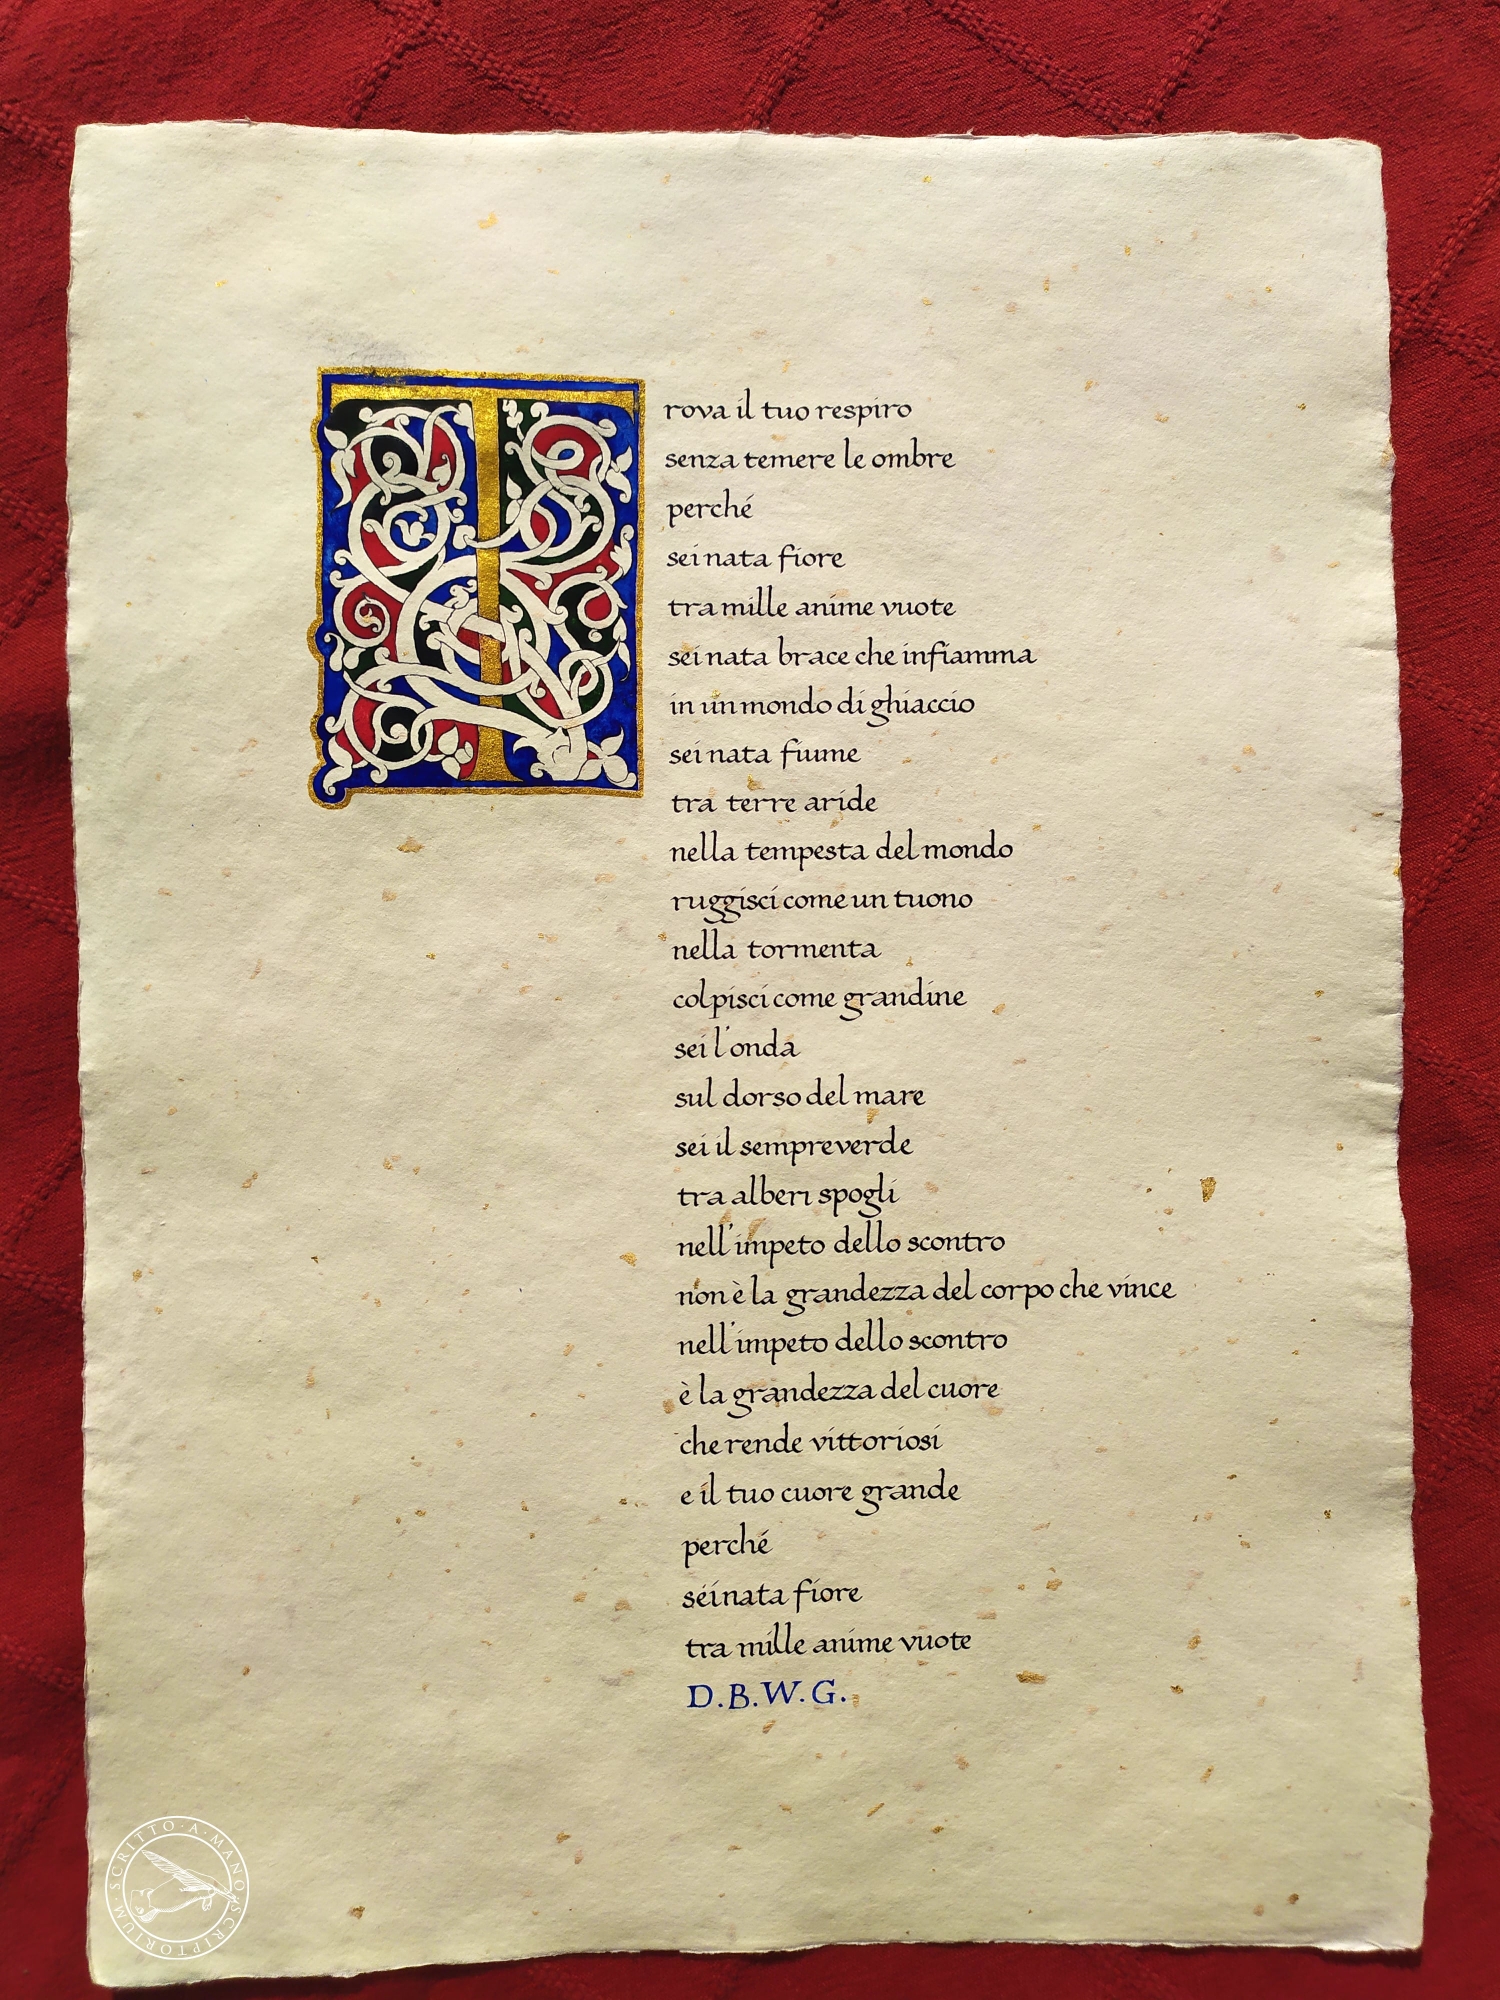 Trova il tuo respiro
senza temere le ombre
perché
sei nata fiore
tra mille anime vuote
sei nata brace che infiamma
in un mondo di ghiaccio
sei nata fiume
tra terre aride
nella tempesta del mondo
ruggisci come un tuono
nella tormenta
colpisci come grandine
sei l'onda
sul dorso del mare
sei il sempreverde
tra alberi spogli
nell'impeto dello scontro
non è la grandezza del corpo che vince
nell'impeto dello scontro
è la grandezza del cuore
che rende vittoriosi
e il tuo cuore grande
perché
sei nata fiore
tra mille anime vuote
D.B.W.G.
SCRITTO·A·MANO·SCRIPTORIUM·